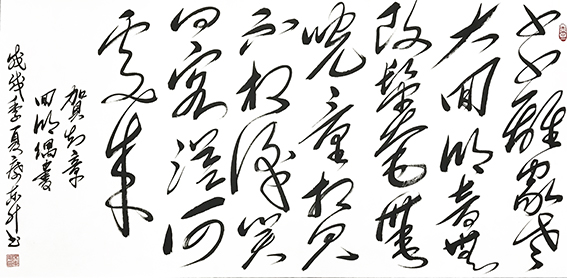 少小離家老
大回鄉音無
改鬢毛衰
兒童相見
不相識笑
問客從何
處來
賀知章
回鄉偶書
戊戌季夏東升書